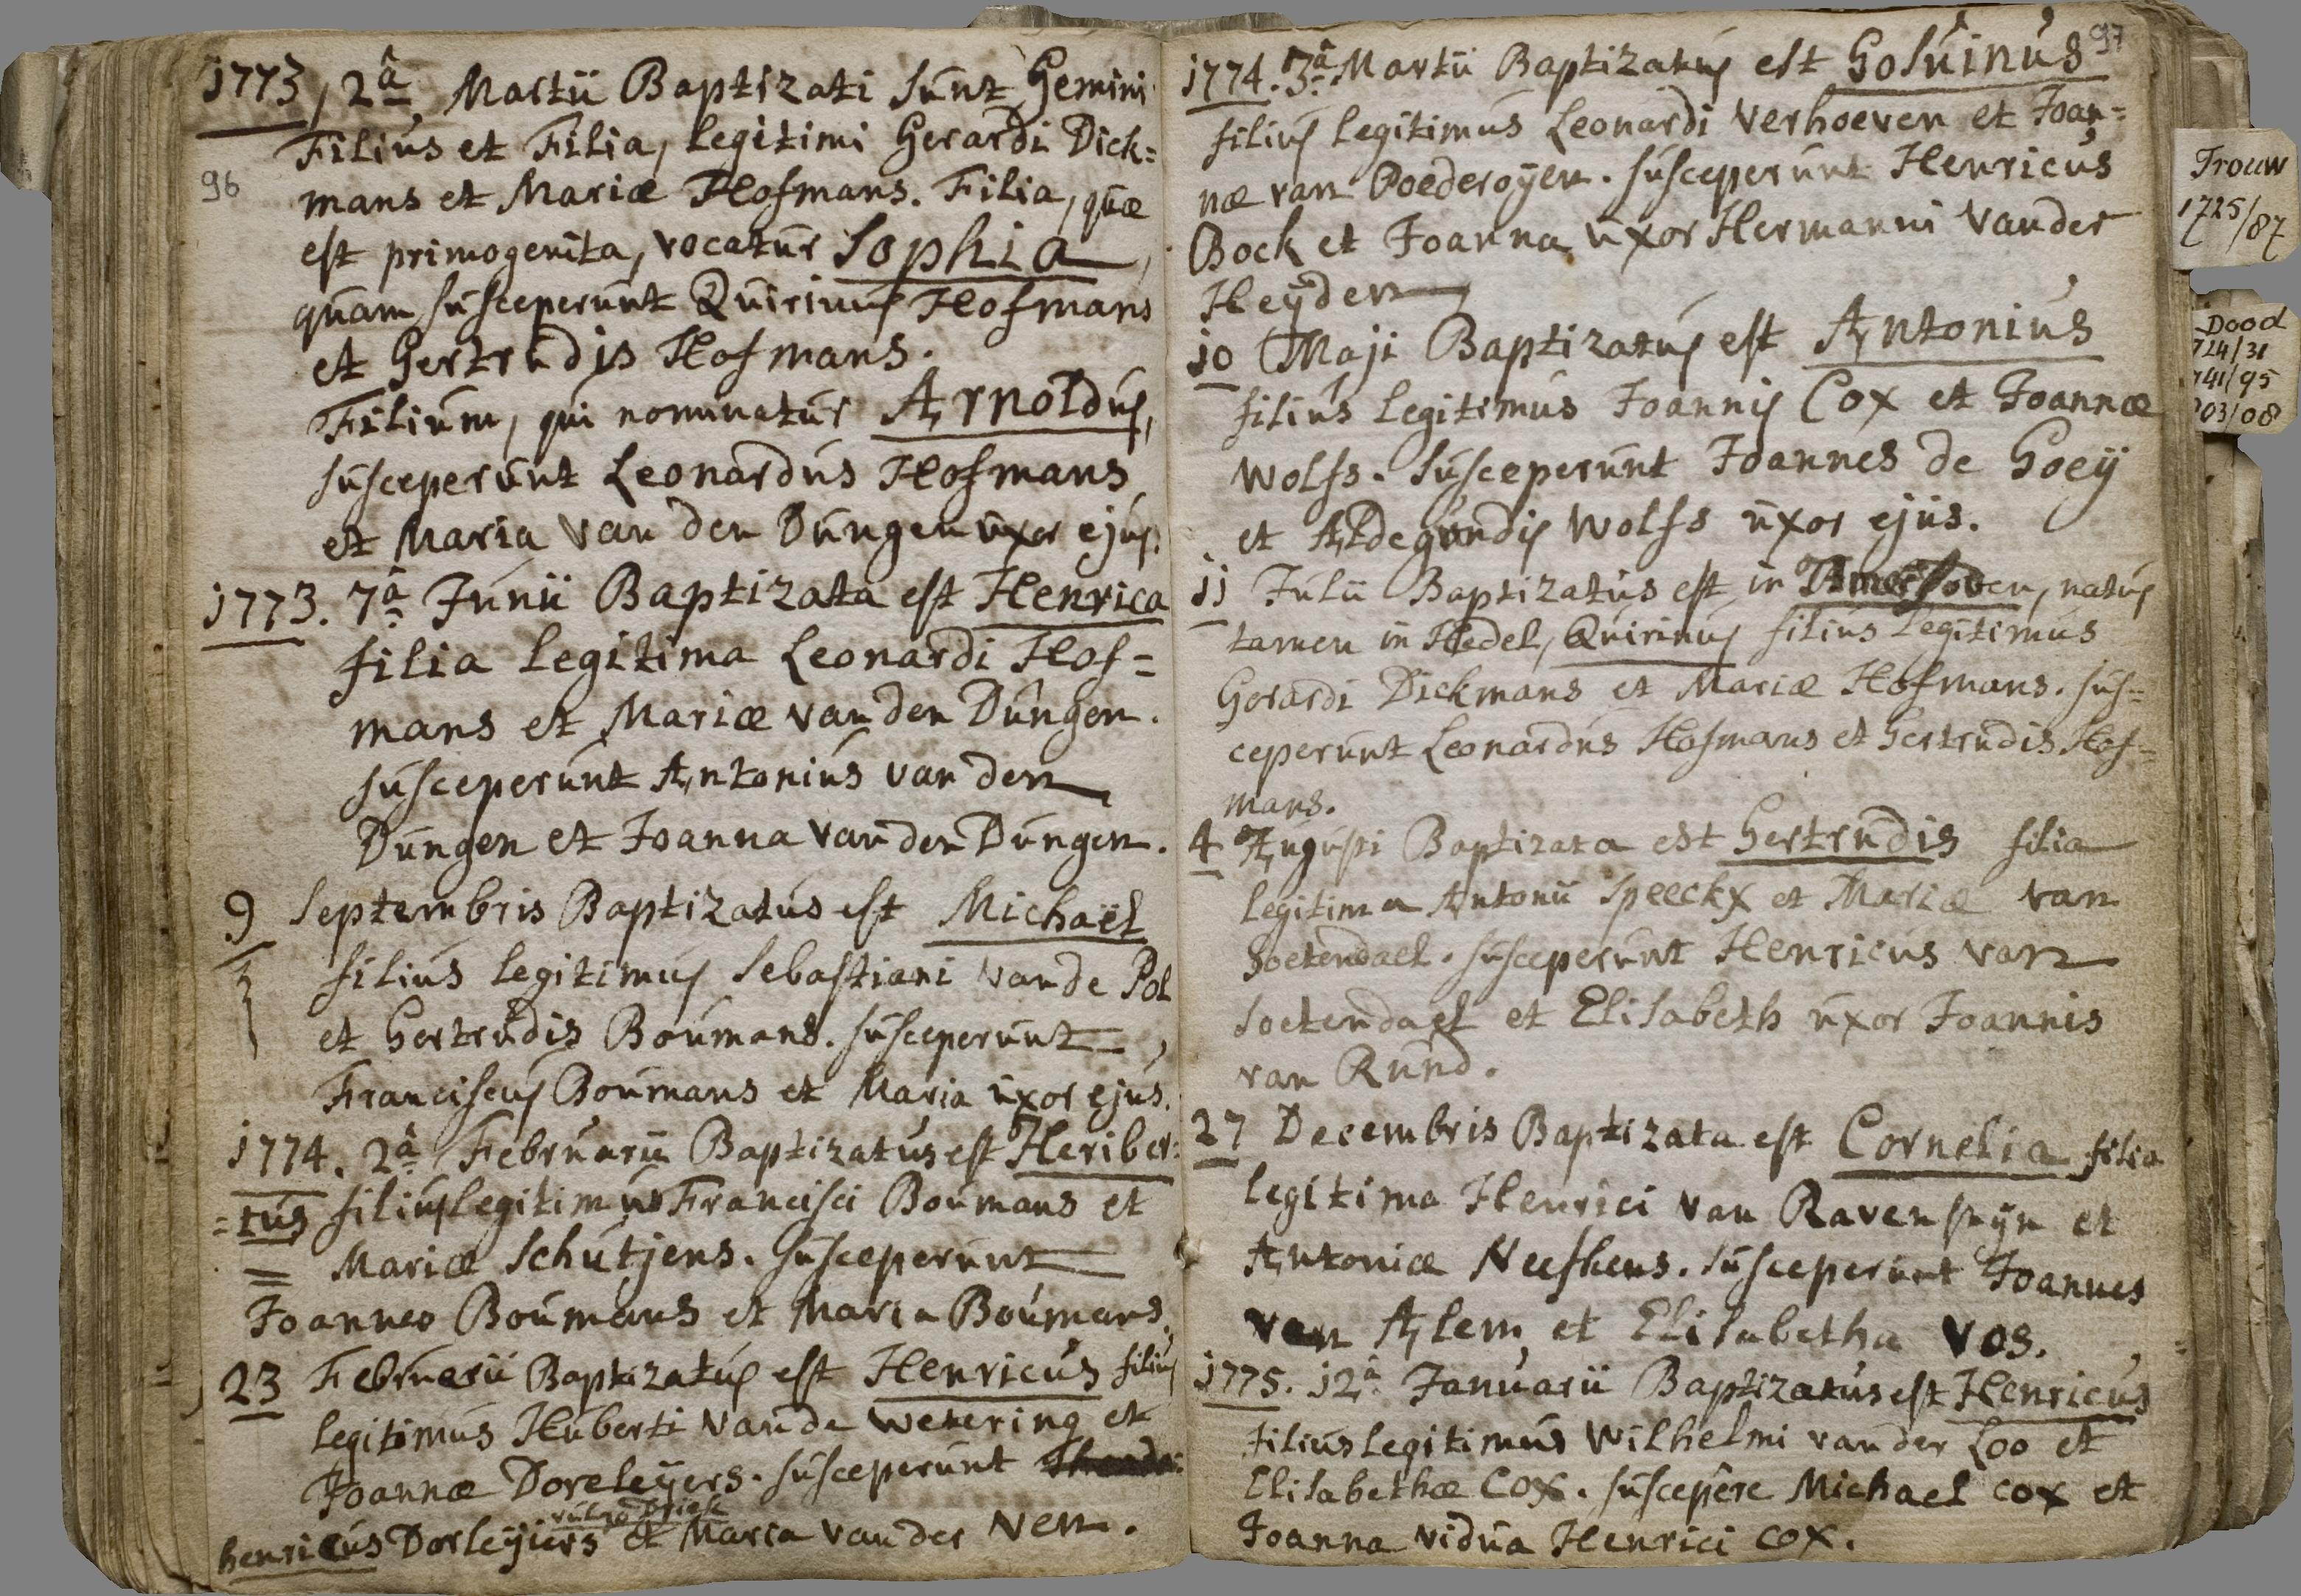 1773, 2â Martii Baptizati sunt Gemini
Filius et Filia, legitimi Gerardi Dick=
96
mans et Mariæ Hofmans. Filia, quæ
est primogenita, vocatur Sophia,
quam susceperunt Quirinus Hofmans
et Gertrudis Hofmans.
Filium, qui nominatur Arnoldus,
susceperunt Leonardus Hofmans
et Maria van den Dungen uxor ejus.
1773. 7â Junii Baptizata est Henrica
filia legitima Leonardi Hof=
mans et Mariæ van den Dungen.
susceperunt Antonius van den
Dungen et Joanna van den Dungen.
9 Septembris Baptizatus est Michaël
filius legitimus Sebastiani van de Pol
et Gertrudis Boumans. susceperunt
Franciscus Boumans et Maria uxor ejus.
1774. 2â Februarii Baptizatus est Heriber=
=tus filius legitimus Francisci Boumans et
Mariæ Schutjens. susceperunt
Joannes Boumans et Maria Boumans.
23 Februarii Baptizatus est Henricus filius
legitimus Huberti van de Wetering et
Joannæ Doreleyers. susceperunt
vulgo
henricus Dorleyiers et Maria van der Ven.
97
1774. 3â Martii Baptizatus est Gosuinus
filius legitimus Leonardi Verhoeven et Joan=
næ van Poederoÿen. susceperunt Henricus
Bock et Joanna uxor Hermanni Van der
Heÿden
10 Maji Baptizatus est Antonius
filius legitimus Joannis Cox et Joannæ
Wolfs. susceperunt Joannes de Goeÿ
et Aldegundis Wolfs uxor ejus.
11 Julii Baptizatus est in Amersoden, natus
tamen in Hedel, Quirinus filius legitimus
Gerardi Dickmans et Mariæ Hofmans. sus=
ceperunt Leonardus Hofmans et Gertrudis Hof=
mans.
4 Augusti Baptizata est Gertrudis filia
legitima Antonii Speeckx et Mariæ van
Soetendael. susceperunt Henricus van
Soetendael et Elisabeth uxor Joannis
van Rund.
27 Decembris Baptizata est Cornelia filia
legitima Henrici van Ravensteyn et
Antoniæ Neefkens. susceperunt Joannes
van Alem et Elisabetha Vos.
1775. 12â Januarii Baptizatus est Henricus
filius legitimus Wilhelmi van der Loo et
Elisabethæ Cox. suscepêre Michael Cox et
Joanna vidua Henrici Cox.
Trouw
1725/87
Dood
724/31
741/95
803/08